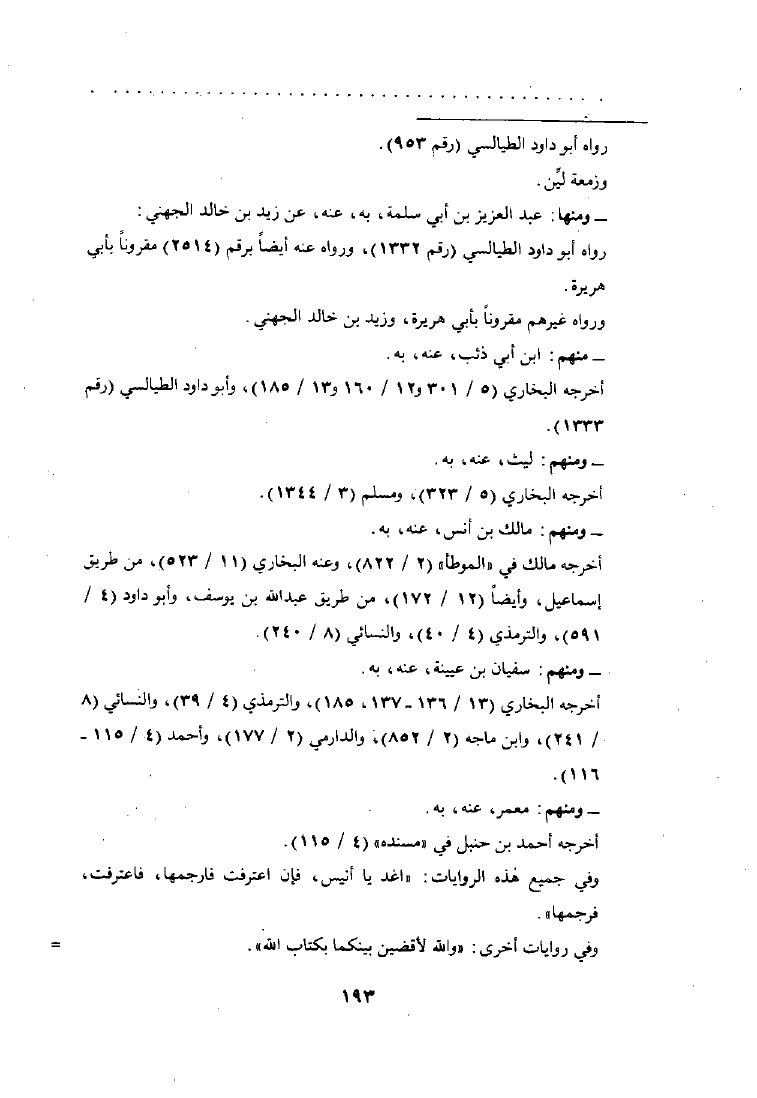 رواه أبو داود الطيالسي (رقم ٩٥٣).
وزمعة ليِّن.
ـ ومنها: عبد العزيز بن أبي سلمة، به، عنه، عن زيد بن خالد الجهني:
رواه أبو داود الطيالسي (رقم ١٣٣٢)، ورواه عنه أيضاً برقم (٢٥١٤) مقروناً بأبي
هريرة.
ورواه غيرهم مقروناً بأبي هريرة، وزيد بن خالد الجهني.
ـ منهم: ابن أبي ذئب، عنه، به.
أخرجه البخاري (٥ / ٣٠١ و١٢ / ١٦٠ و١٣ / ١٨٥)، وأبو داود الطيالسي (رقم
١٣٣٣).
ـ ومنهم: ليث، عنه، به.
أخرجه البخاري (٥ / ٣٢٣)، ومسلم (٣ / ١٣٤٤).
ـ ومنهم: مالك بن أنس، عنه، به.
أخرجه مالك في «الموطأ» (٢ / ٨٢٢)، وعنه البخاري (١١ / ٥٢٣)، من طريق
إسماعيل، وأيضاً (١٢ / ١٧٢)، من طريق عبدالله بن يوسف، وأبو داود (٤ /
٥٩١)، والترمذي (٤ / ٤٠)، والنسائي (٨ / ٢٤٠).
ـ ومنهم: سفيان بن عيينة، عنه، به.
أخرجه البخاري (١٣ / ١٣٦ ـ ١٣٧، ١٨٥)، والترمذي (٤ / ٣٩)، والنسائي (٨
/ ٢٤١)، وابن ماجه (٢ / ٨٥٢)، والدارمي (٢ / ١٧٧)، وأحمد (٤ / ١١٥ ـ
١١٦).
ـ ومنهم: معمر، عنه، به.
أخرجه أحمد بن حنبل في «مسنده» (٤ / ١١٥).
وفي جميع هٰذه الروايات: «اغد يا أنيس، فإن اعترفت فارجمها، فاعترفت،
فرجمها».
وفي روايات أخرى: «والله لأقضين بينكما بكتاب الله». =
١٩٣